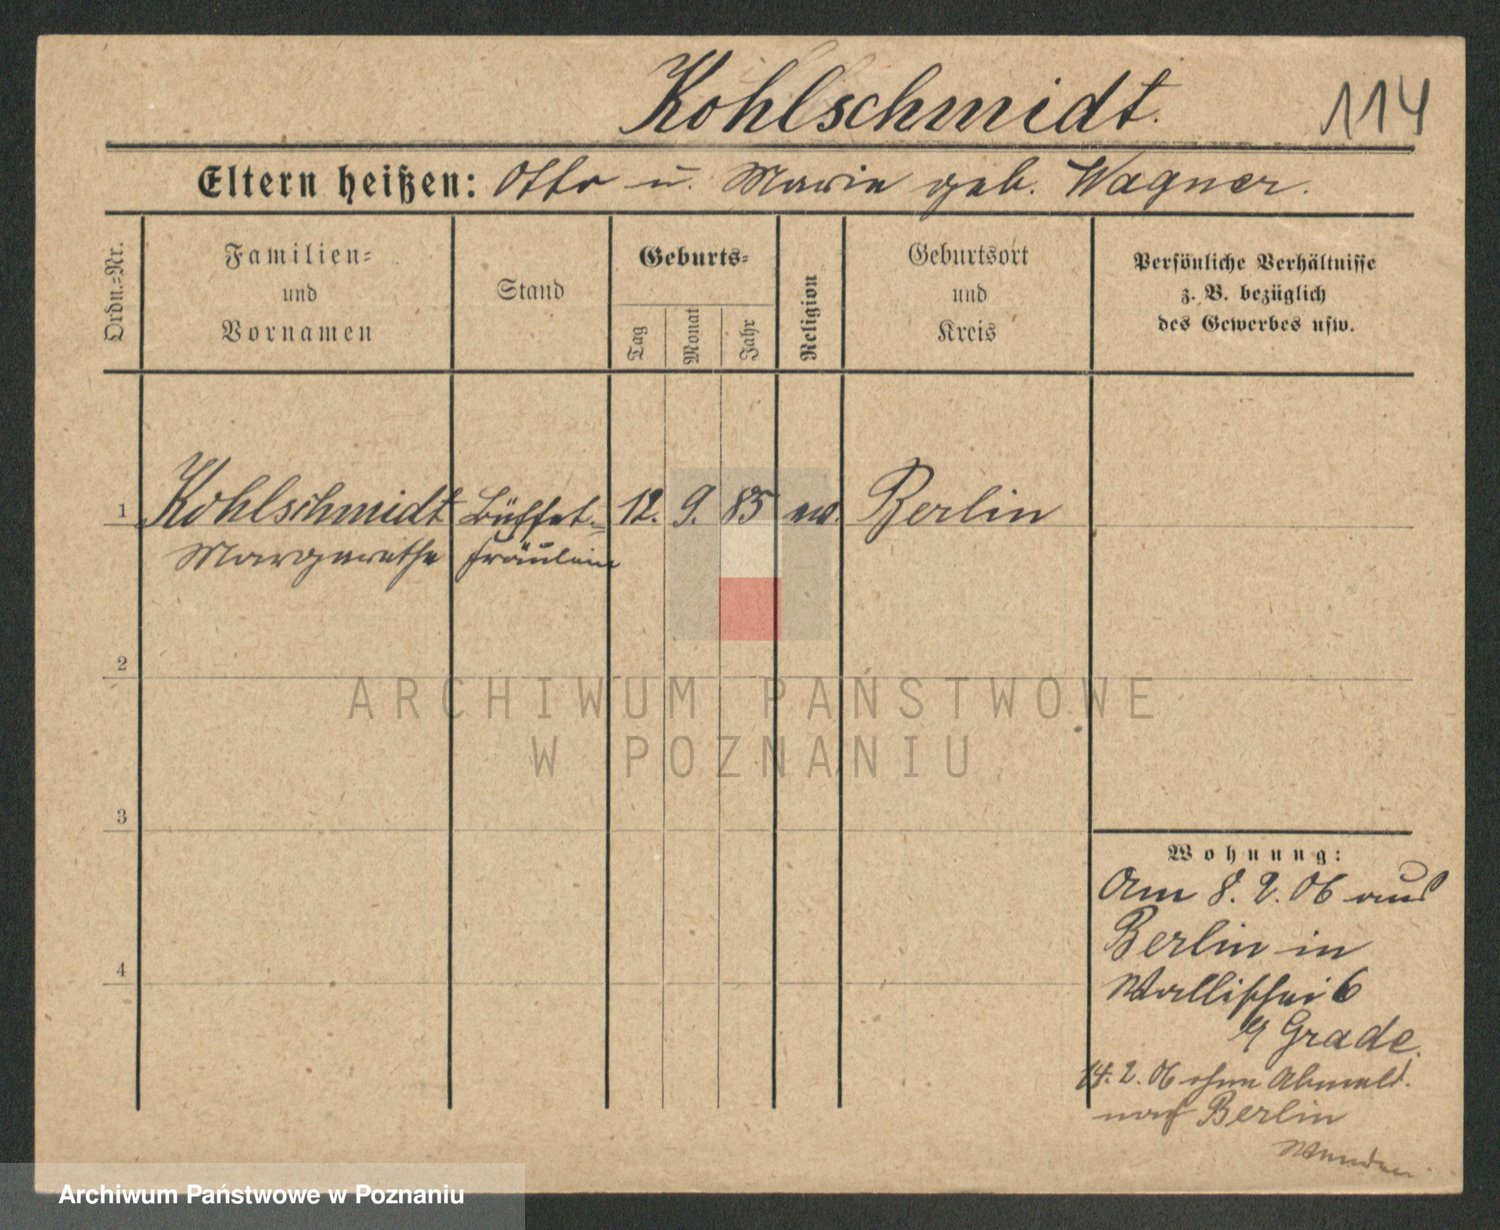 Kohlschmidt.
114
Eltern heißen: Otto u. Marie geb. Wagner.
Ordn.-Nr.
Familien-
und
Vornamen
Stand
Geburts-
Tag
Monat
Jahr
Religion
Geburtsort
und
Kreis
Persönliche Verhältnisse
z. B. bezüglich
des Gewerbes usw.
1 Kohlschmidt Büffet- 12. 9. 85 ev. Berlin
Margarethe fräulein
2
ARCHIWUM PAŃSTWOWE
W POZNANIU
3
Wohnung:
Am 8. 2. 06 aus
Berlin in
4
Wallischei 6
Grade.
14. 2. 06 ohne Abmeld.
nach Berlin
Archiwum Państwowe w Poznaniu